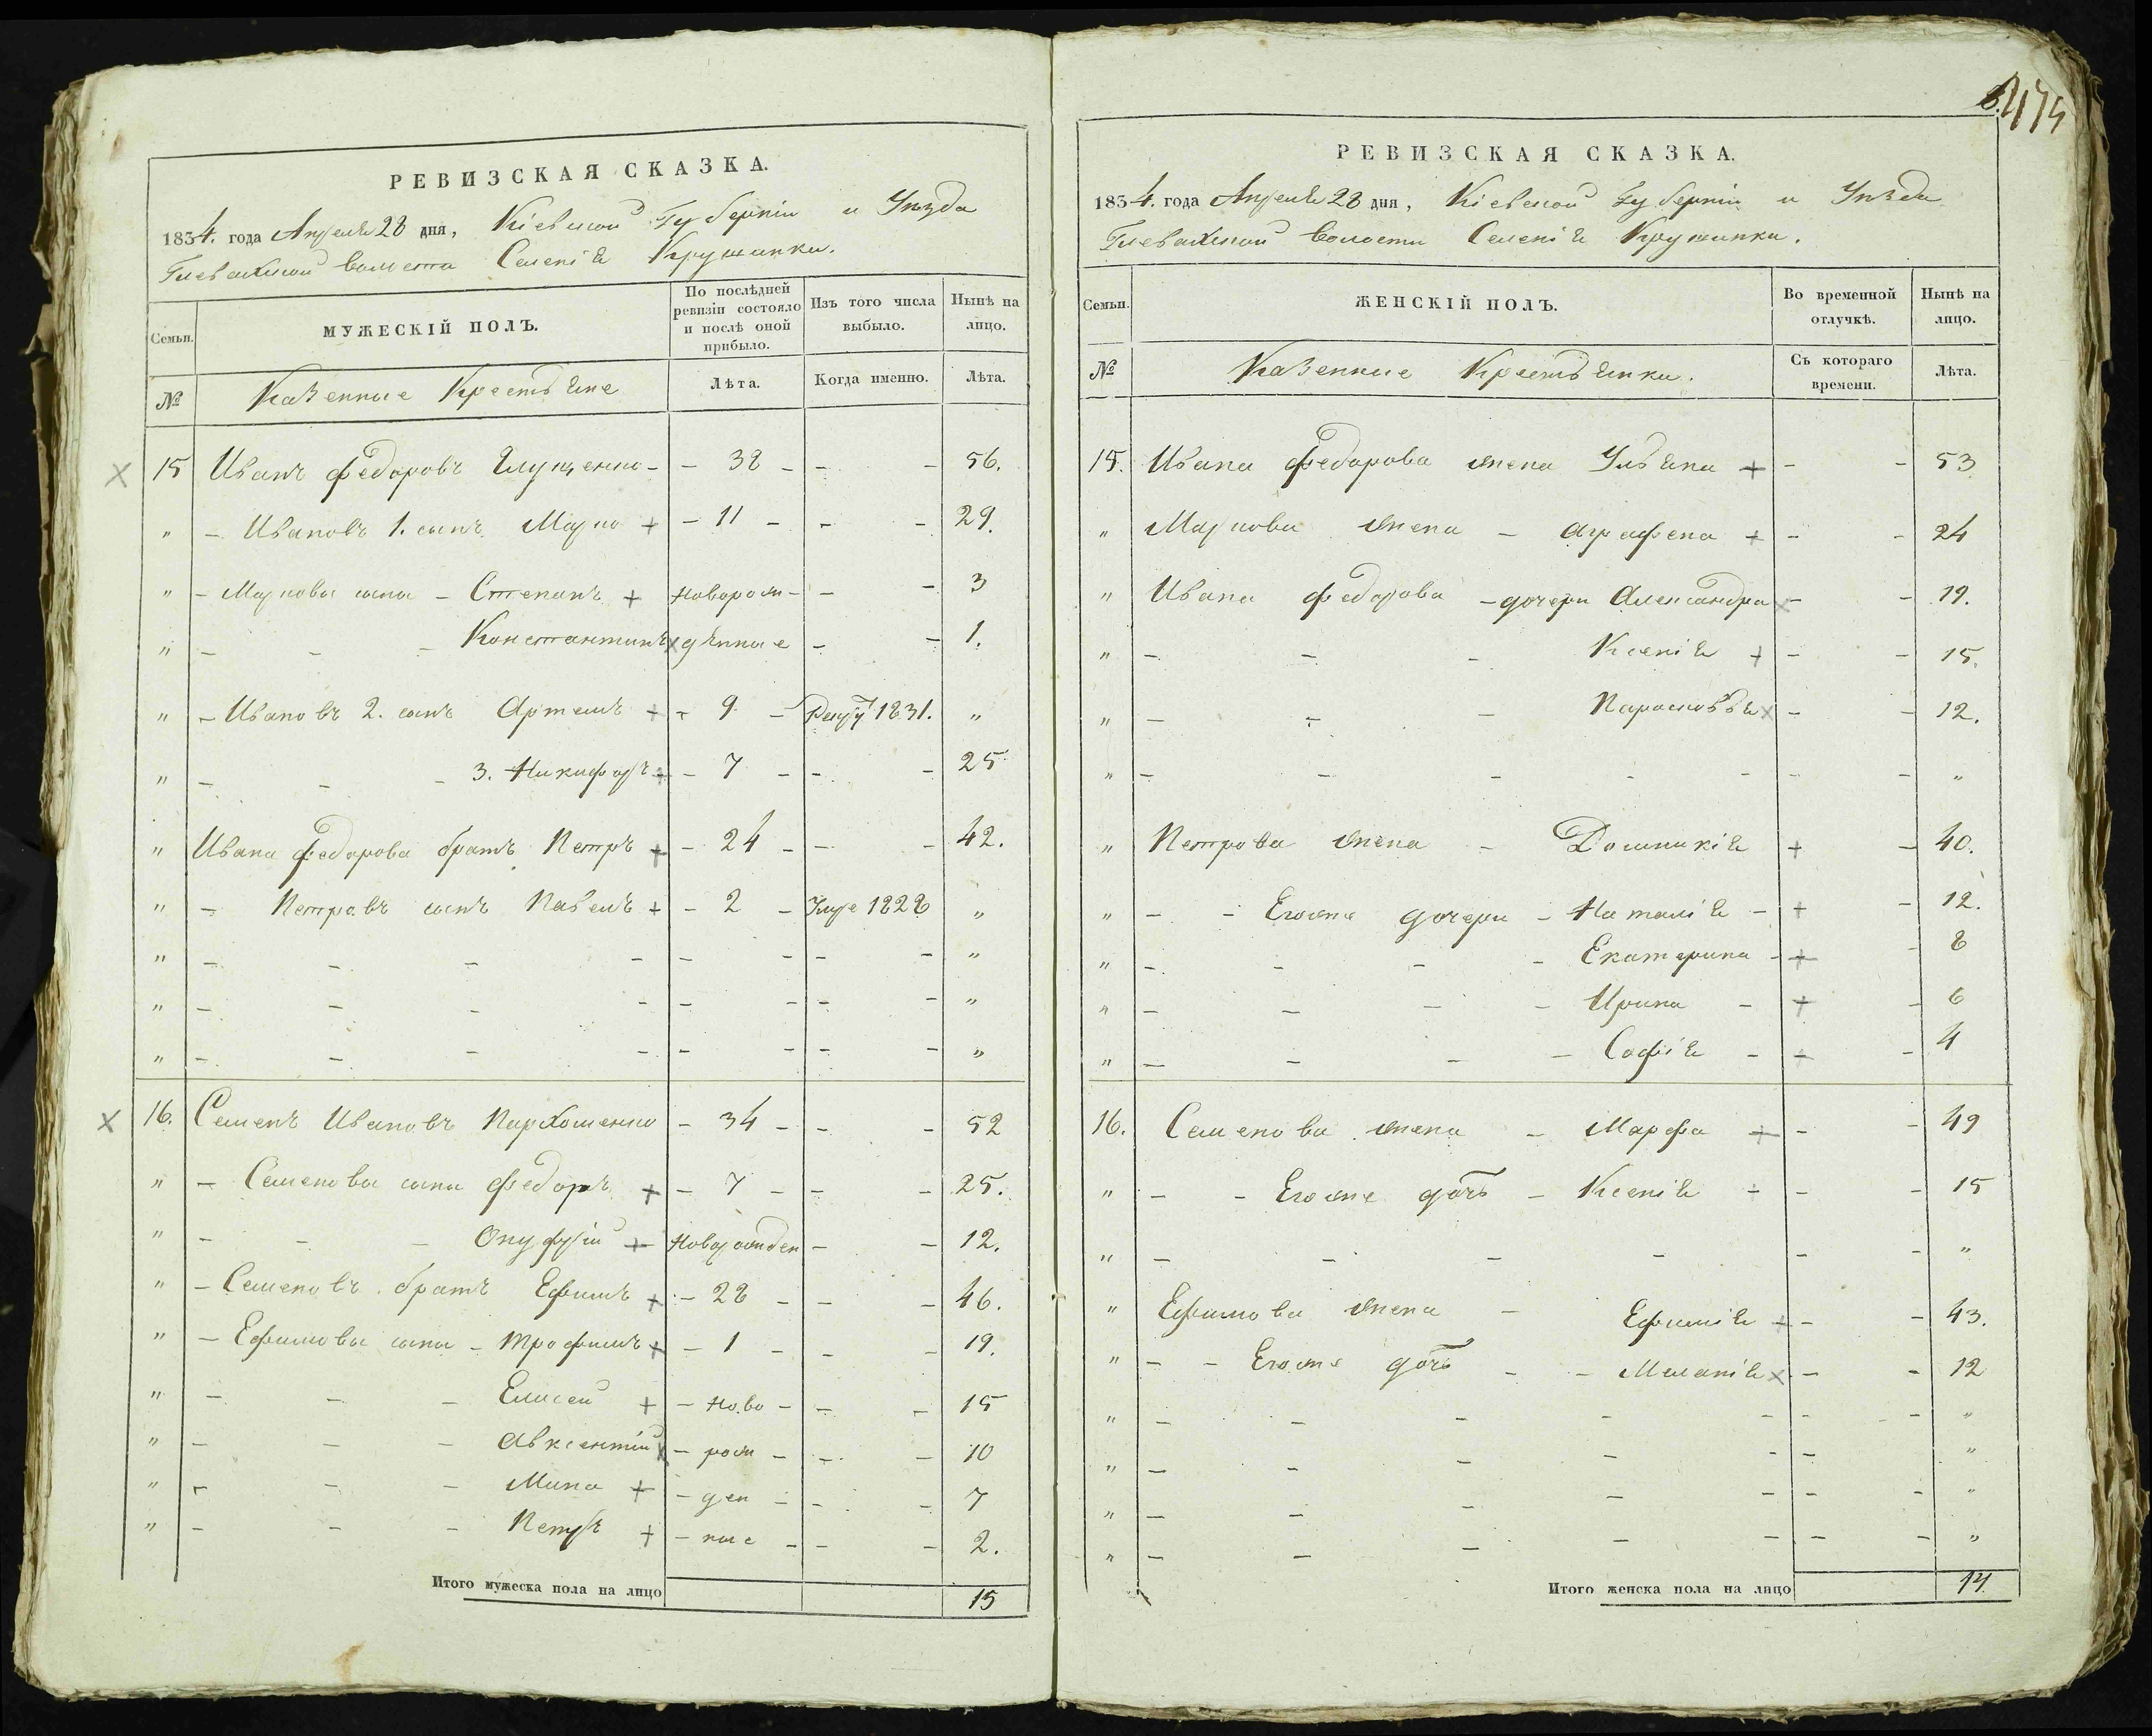 РЕВИЗСКАЯ СКАЗКА.
1834. года Апреля 28 дня, Кіевской Губерніи и Уѣзда
Глевахской волости Селенія Крушинки.
Семьи. МУЖЕСКІЙ ПОЛЪ. По послѣдней ревизіи состояло и послѣ оной прибыло. Изъ того числа выбыло. Нынѣ на лицо.
№ Казенные Крестьяне Лѣта. Когда именно. Лѣта.
15 Иванъ Федоровъ Глущенко - - 38 - - - 56.
" - Ивановъ 1. сынъ Марко + - 11 - - - 29.
" - Марковы сыны - Степанъ + Неворож- - - 3
" - - - Константинъ х дѣнные - - 1.
" - Ивановъ 2. сынъ Артемъ + - 9 - Рекрут 1831. "
" - - - 3. Никифоръ + - 7 - - - 25
" Ивана Федорова братъ Петръ + - 24 - - - 42.
" - Петровъ сынъ Павелъ + - 2 - Умре 1828 "
" - - - - - - - - "
" - - - - - - - - "
" - - - - - - - - "
16. Семенъ Ивановъ Пархоменко - 34 - - - 52
" - Семеновы сыны Федоръ + - 7 - - - 25.
" - - - Онуфрій + Новорожден - - 12.
" - Семеновъ братъ Ефимъ + - 28 - - - 46.
" - Ефимовы сыны - Трофимъ + - 1 - - - 19.
" - - - Елисей + - ново - - - 15
" - - - Авксентій х - рож - - - 10
" - - - Мина + - ден - - - 7
" - - - Петръ + - ные - - - 2.
Итого мужеска пола на лицо 15
475
РЕВИЗСКАЯ СКАЗКА.
1834. года Апреля 28 дня, Кіевской Губерніи и Уѣзда
Глевахской волости Селенія Крушинки.
Семьи. ЖЕНСКІЙ ПОЛЪ. Во временной отлучкѣ. Нынѣ на лицо.
№ Казенные Крестьянки. Съ котораго времени. Лѣта.
15. Ивана Федорова жена Ульяна + - - 53
" Маркова жена - Аграфена + - - 24
" Ивана Федорова - дочери Александра х - - 19.
" - - - Ксенія + - - 15.
" - - - Парасковья х - - 12.
" - - - - - - - "
" Петрова жена - Домникія + - 40.
" - - Егоже дочери - Наталія - + - 12.
" - - - - Екатерина - + - 8
" - - - - Ирина - + - 6
" - - - - Софія - + - 4
16. Семенова жена - Марфа + - - 49
" - - Егоже дочь - Ксенія + - - 15
" - - - - - - "
" Ефимова жена - Ефимія + - - 43.
" - - Егоже дочь - - Меланія х - - 12
" - - - - - - - "
" - - - - - - "
" - - - - - - - "
" - - - - - - - "
Итого женска пола на лицо 14